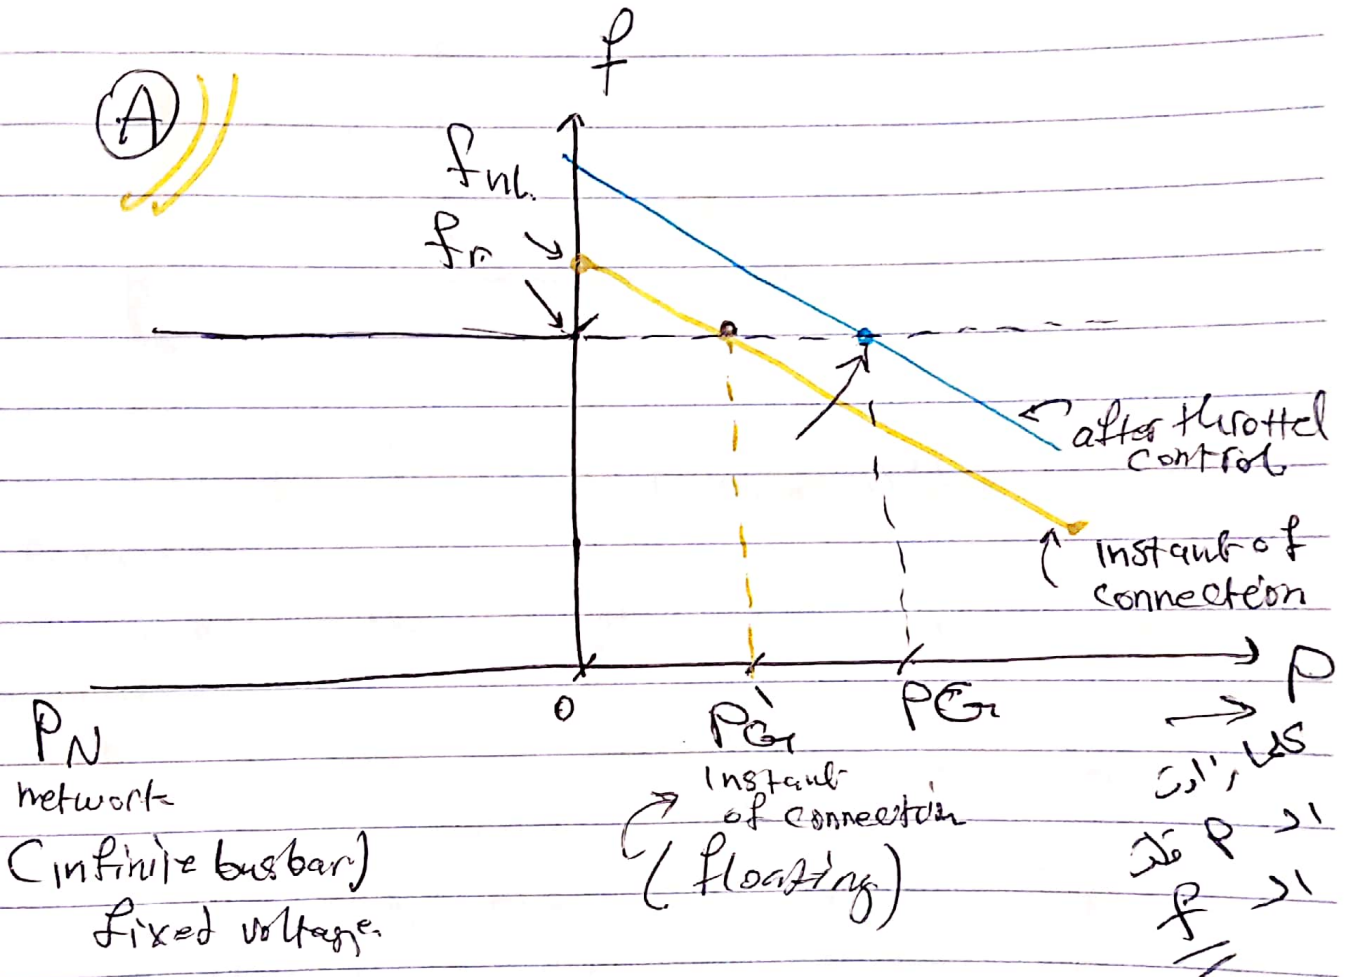 f
A
fnl.
fn
after throttel
control
instant of
connection
P
0
PG'
PG
PN
network
(infinite busbar)
fixed voltage.
instant
of connection
(floating)
كلما زادت
الـ P قلت
الـ f